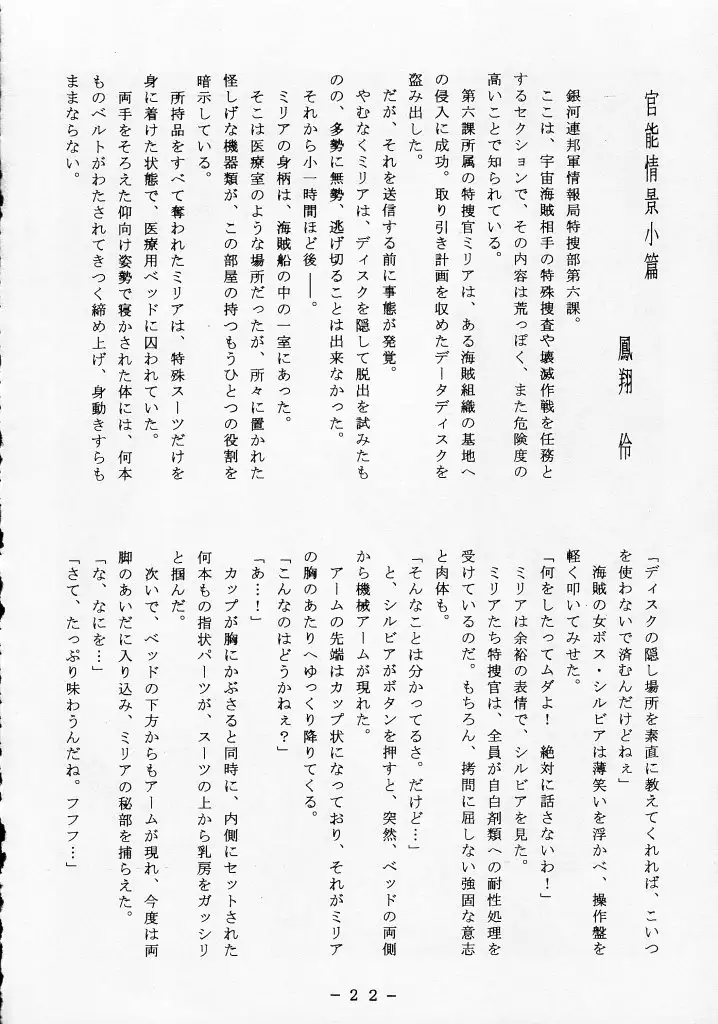 官能情景小篇
鳳翔 伶
銀河連邦軍情報局特捜部第六課。
ここは、宇宙海賊相手の特殊捜査や壊滅作戦を任務と
するセクションで、その内容は荒っぽく、また危険度の
高いことで知られている。
第六課所属の特捜官ミリアは、ある海賊組織の基地へ
の侵入に成功。取り引き計画を収めたデータディスクを
盗み出した。
だが、それを送信する前に事態が発覚。
やむなくミリアは、ディスクを隠して脱出を試みたも
のの、多勢に無勢、逃げ切ることは出来なかった。
それから小一時間ほど後――。
ミリアの身柄は、海賊船の中の一室にあった。
そこは医療室のような場所だったが、所々に置かれた
怪しげな機器類が、この部屋の持つもうひとつの役割を
暗示している。
所持品をすべて奪われたミリアは、特殊スーツだけを
身に着けた状態で、医療用ベッドに囚われていた。
両手をそろえた仰向け姿勢で寝かされた体には、何本
ものベルトがわたされてきつく締め上げ、身動きすらも
ままならない。
「ディスクの隠し場所を素直に教えてくれれば、こいつ
を使わないで済むんだけどねぇ」
海賊の女ボス・シルビアは薄笑いを浮かべ、操作盤を
軽く叩いてみせた。
「何をしたってムダよ! 絶対に話さないわ!」
ミリアは余裕の表情で、シルビアを見た。
ミリアたち特捜官は、全員が自白剤類への耐性処理を
受けているのだ。もちろん、拷問に屈しない強固な意志
と肉体も。
「そんなことは分かってるさ。だけど…」
と、シルビアがボタンを押すと、突然、ベッドの両側
から機械アームが現れた。
アームの先端はカップ状になっており、それがミリア
の胸のあたりへゆっくり降りてくる。
「こんなのはどうかねぇ?」
「あ…!」
カップが胸にかぶさると同時に、内側にセットされた
何本もの指状パーツが、スーツの上から乳房をガッシリ
と掴んだ。
次いで、ベッドの下方からもアームが現れ、今度は両
脚のあいだに入り込み、ミリアの秘部を捕らえた。
「な、なにを…」
「さて、たっぷり味わうんだね。フフフ…」
－22－